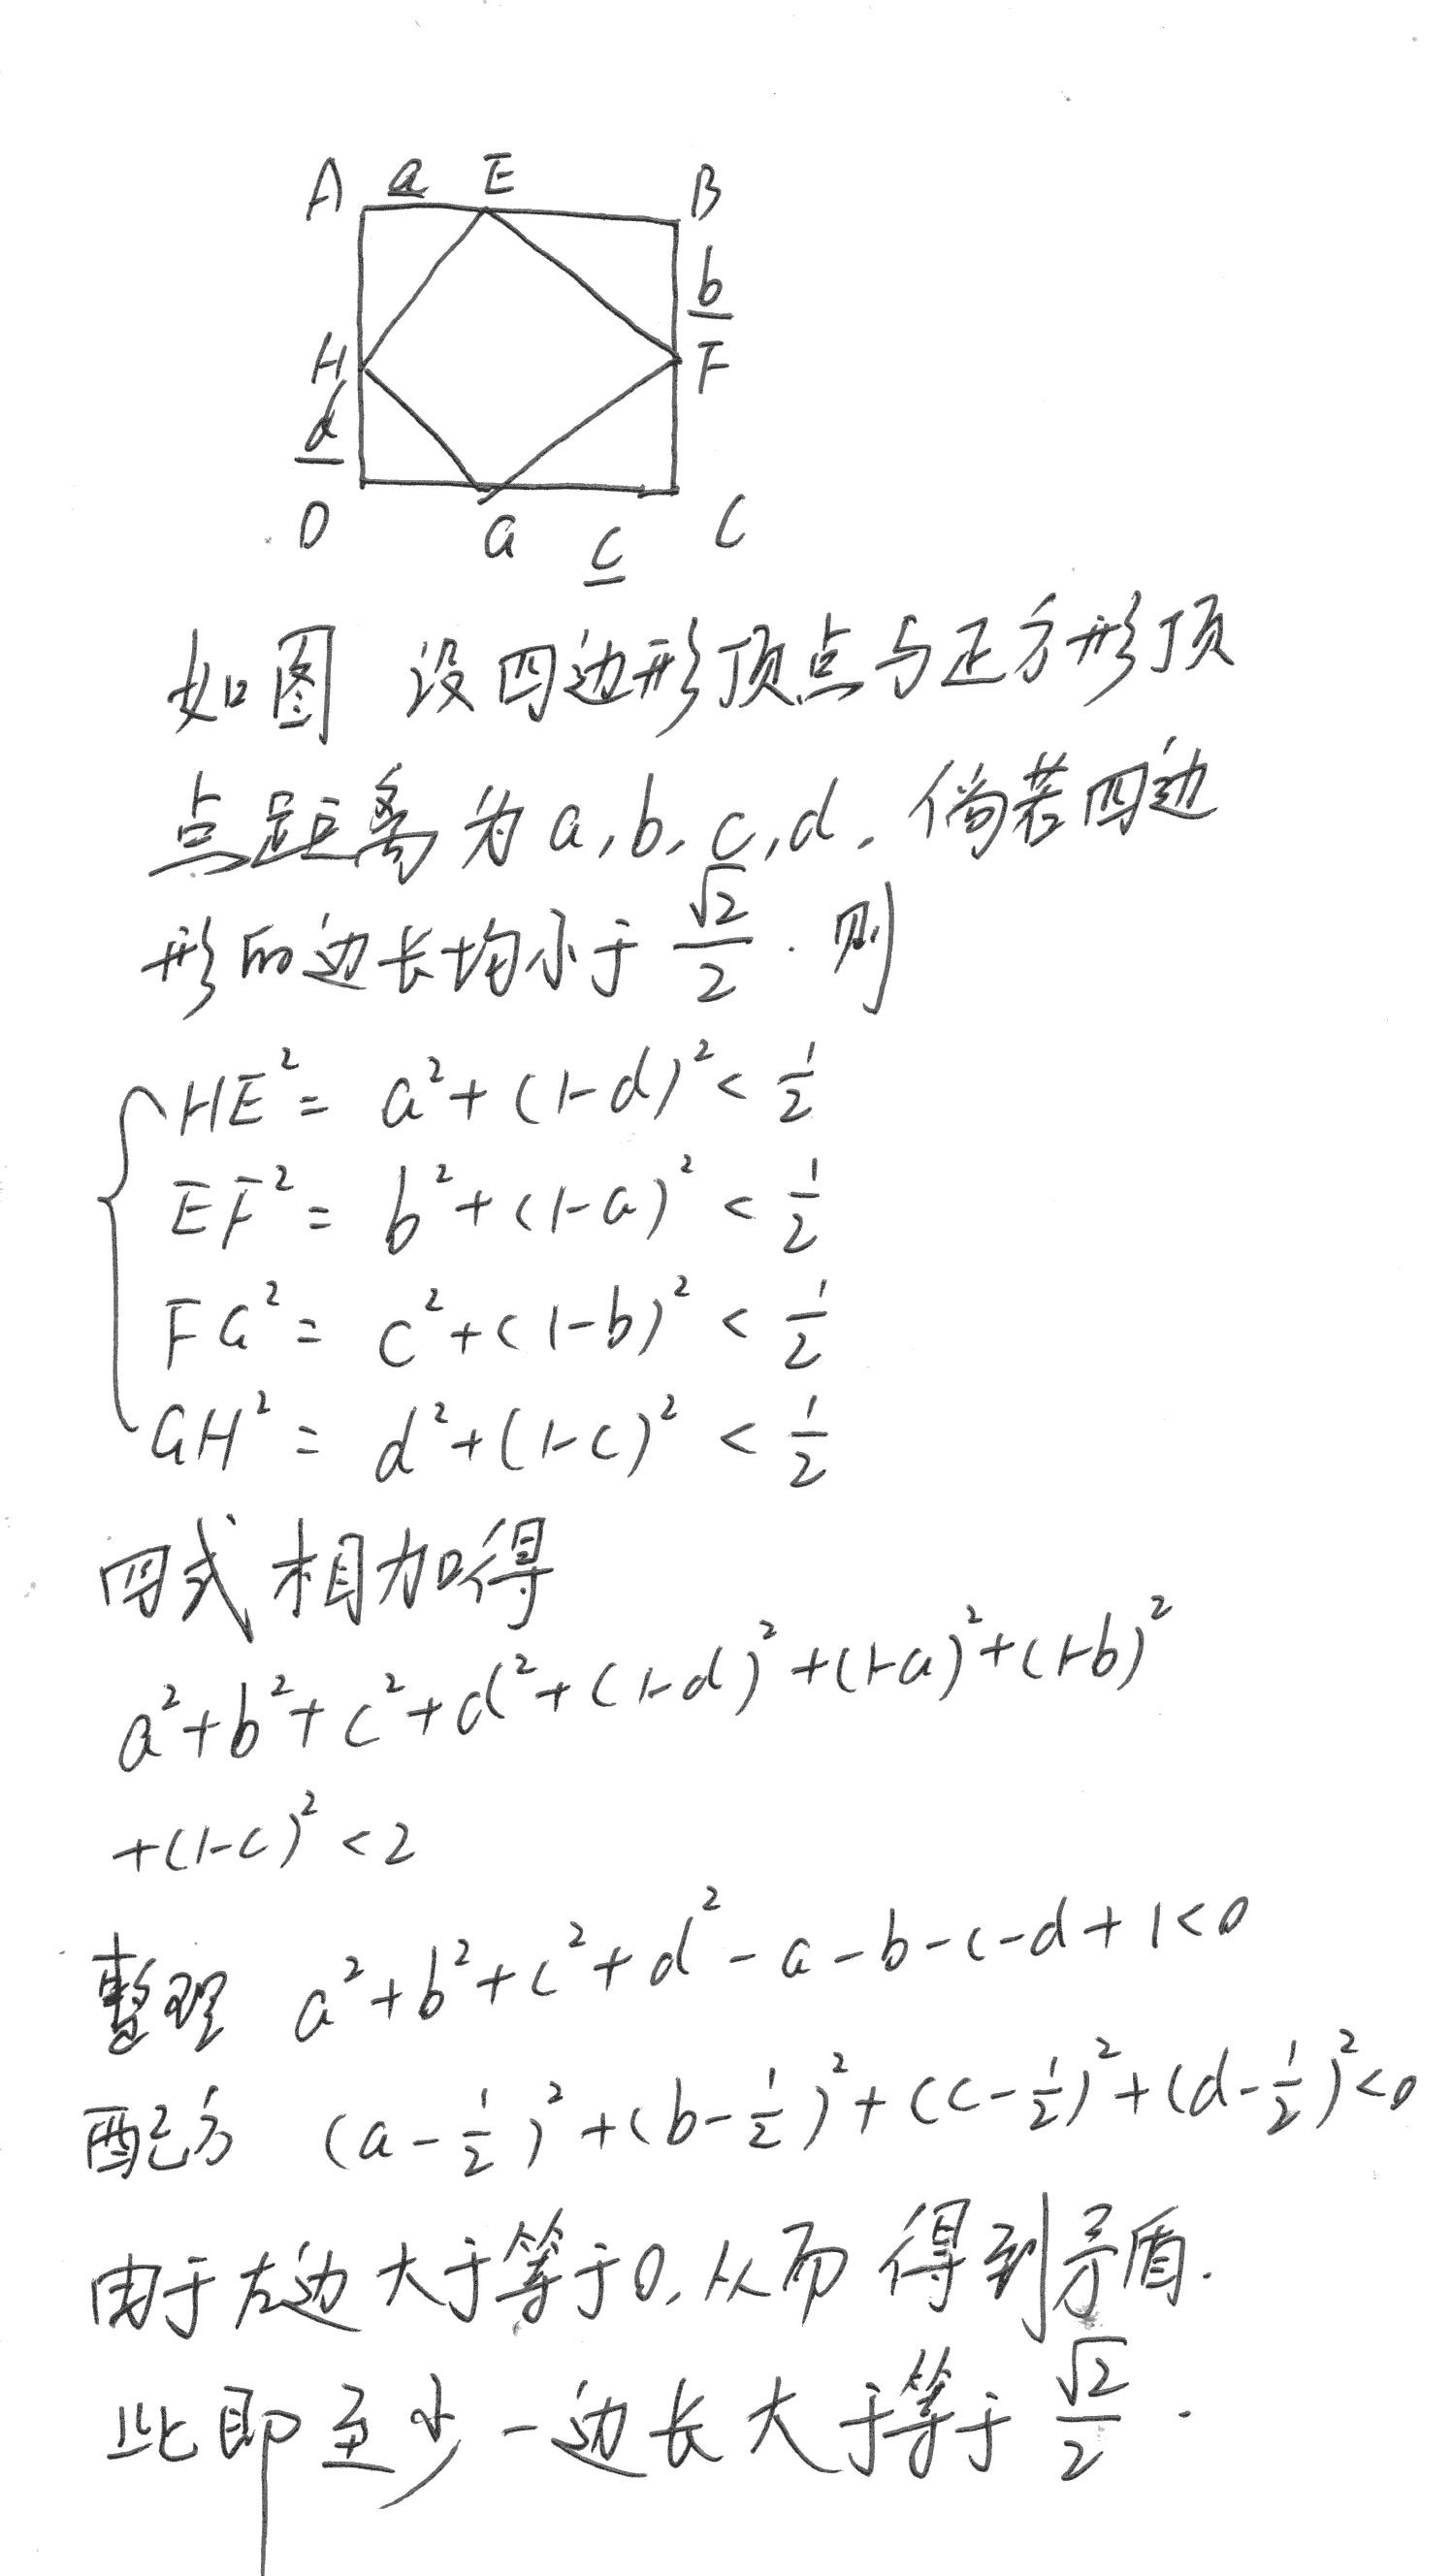 A a E B
b
H F
d
D G c C
如图 设四边形顶点与正方形顶
点距离为 a, b, c, d. 倘若四边
形的边长均小于 √2/2. 则
HE² = a² + (1-d)² < 1/2
EF² = b² + (1-a)² < 1/2
FG² = c² + (1-b)² < 1/2
GH² = d² + (1-c)² < 1/2
四式相加得
a²+b²+c²+d²+(1-d)²+(1-a)²+(1-b)²
+(1-c)² < 2
整理 a²+b²+c²+d²-a-b-c-d+1<0
配方 (a-1/2)²+(b-1/2)²+(c-1/2)²+(d-1/2)²<0
由于左边大于等于0, 从而得到矛盾.
此即至少一边长大于等于 √2/2.